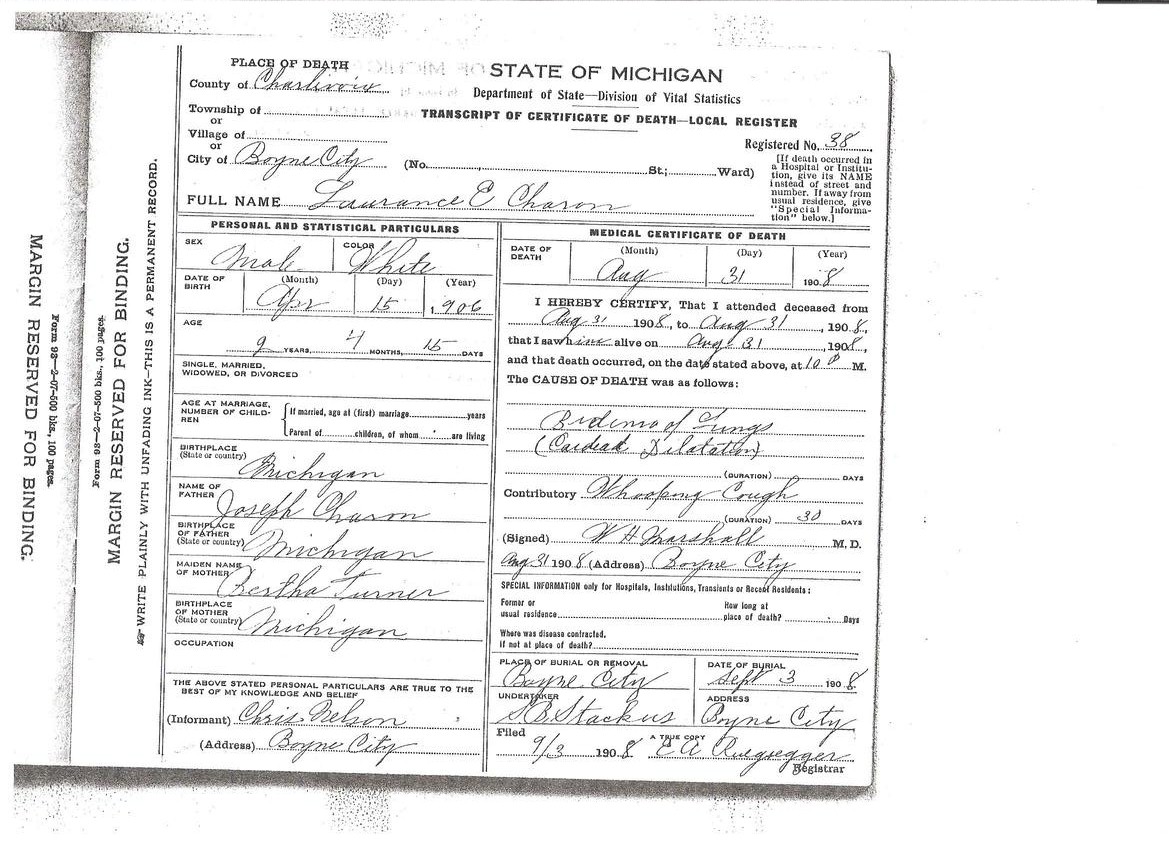 PLACE OF DEATH
County of Charlevoix
Township of
or
Village of
or
City of Boyne City
STATE OF MICHIGAN
Department of State—Division of Vital Statistics
TRANSCRIPT OF CERTIFICATE OF DEATH—LOCAL REGISTER
Registered No. 38
(No. St.; Ward)
[If death occurred in
a Hospital or Institu-
tion, give its NAME
instead of street and
number. If away from
usual residence, give
"Special Informa-
tion" below.]
FULL NAME Laurance E Charon
PERSONAL AND STATISTICAL PARTICULARS
SEX Male COLOR White
DATE OF BIRTH (Month) (Day) (Year)
Apr 15, 1906
AGE
2 YEARS, 4 MONTHS, 15 DAYS
SINGLE, MARRIED,
WIDOWED, OR DIVORCED
AGE AT MARRIAGE,
NUMBER OF CHILD-
REN
If married, age at (first) marriage years
Parent of children, of whom are living
BIRTHPLACE
(State or country) Michigan
NAME OF
FATHER Joseph Charon
BIRTHPLACE
OF FATHER
(State or country) Michigan
MAIDEN NAME
OF MOTHER Bertha Turner
BIRTHPLACE
OF MOTHER
(State or country) Michigan
OCCUPATION
THE ABOVE STATED PERSONAL PARTICULARS ARE TRUE TO THE
BEST OF MY KNOWLEDGE AND BELIEF
(Informant) Chris Nelson
(Address) Boyne City
MEDICAL CERTIFICATE OF DEATH
DATE OF DEATH (Month) (Day) (Year)
Aug 31 1908
I HEREBY CERTIFY, That I attended deceased from
Aug 31 1908, to Aug 31, 1908,
that I saw him alive on Aug 31, 1908,
and that death occurred, on the date stated above, at 10 P M.
The CAUSE OF DEATH was as follows:
of Lungs
Dilatation)
(DURATION) DAYS
Contributory Whooping Cough
(DURATION) 30 DAYS
(Signed) W H Marshall M. D.
Aug 31 1908 (Address) Boyne City
SPECIAL INFORMATION only for Hospitals, Institutions, Transients or Recent Residents:
Former or
usual residence
How long at
place of death? Days
Where was disease contracted,
if not at place of death?
PLACE OF BURIAL OR REMOVAL
Boyne City
DATE OF BURIAL
Sept 3 1908
UNDERTAKER
S.B. Stackus
ADDRESS
Boyne City
Filed
9/3 1908
A TRUE COPY
E A Ruegsegger
Registrar
WRITE PLAINLY WITH UNFADING INK—THIS IS A PERMANENT RECORD.
MARGIN RESERVED FOR BINDING.
Form 93—2-07-500 bks., 100 pages.
Form 93—2-07-500 bks., 100 pages.
MARGIN RESERVED FOR BINDING.